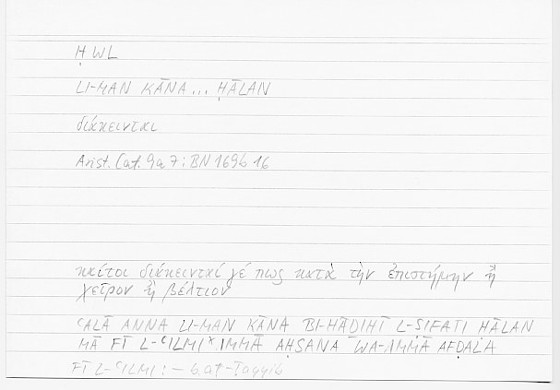 ḤWL
LI-MAN KĀNA... ḤĀLAN
διάκεινται
Arist. Cat. 9a7: BN 169b16
καίτοι διάκεινταί γέ πως κατὰ τὴν ἐπιστήμην ἢ
χεῖρον ἢ βέλτιον
ʿALĀ ANNA LI-MAN KĀNA BI-HĀḎIHĪ L-ṢIFATI ḤĀLAN
MĀ FĪ L-ʿILMIˣ IMMĀ AḤSANA WA-IMMĀ AFḌALA
FĪ L-ʿILMI: – b. aṭ-Ṭayyib